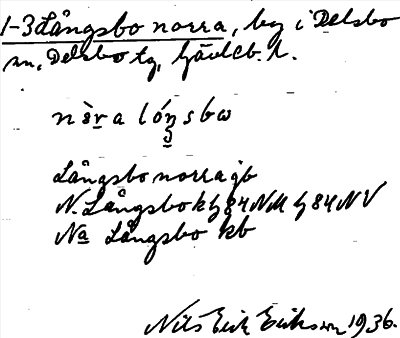 1-3 Långsbo norra, by i Delsbo
sn, Delsbo tg, Gävleb. l.
nèra lóŋsbω
Långsbo norra jb
N. Långsbo kb G84NM G84NV
Na Långsbo kb
Nils Erik Eriksson 1936.